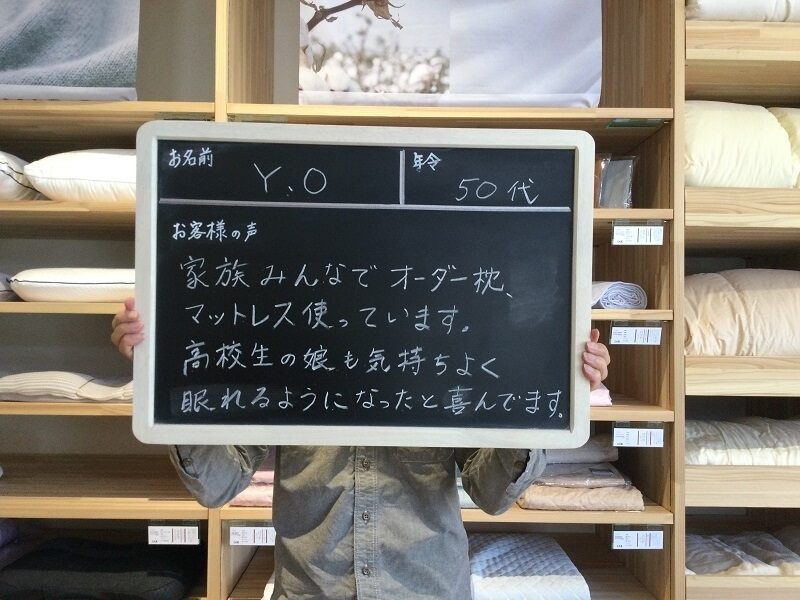 お名前
Y.O
年令
50代
お客様の声
家族みんなでオーダー枕、
マットレス使っています。
高校生の娘も気持ちよく
眠れるようになったと喜んでます。